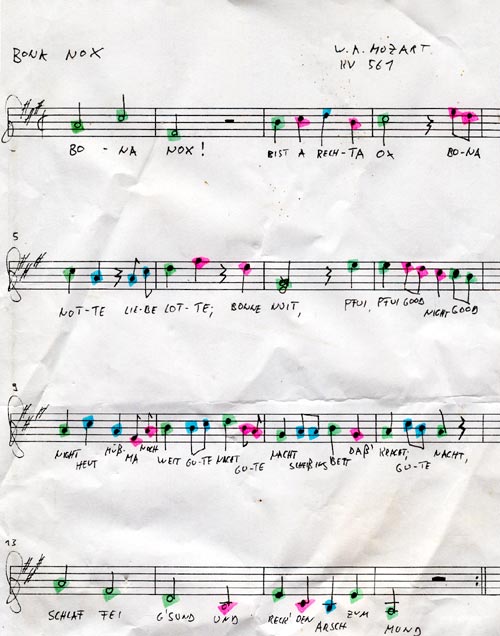 BONA NOX
W.A. MOZART
KV 561
BO - NA NOX! BIST A RECH-TA OX BO-NA
5
NOT-TE LIE-BE LOT-TE; BONNE NUIT, PFUI, PFUI GOOD NIGHT GOOD
9
NIGHT HEUT MÜß- MA NOCH WEIT GU-TE NACHT GU-TE NACHT BETT DAß' KRACHT; GU-TE NACHT,
13
SCHLAF FEI G'SUND UND RECK' DEN ARSCH ZUM MUND